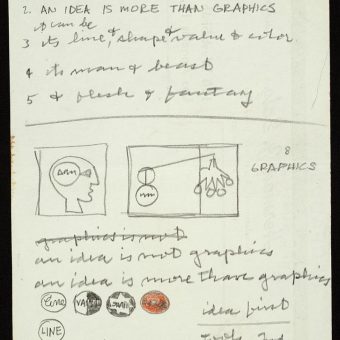 2. AN IDEA IS MORE THAN GRAPHICS
it can be
3 its line & shape & value & color
4 its man & beast
5 & flesh & fantasy
8
GRAPHICS
graphics is not
an idea is not graphics
an idea is more than graphics
Line VALUE
idea first
LINE